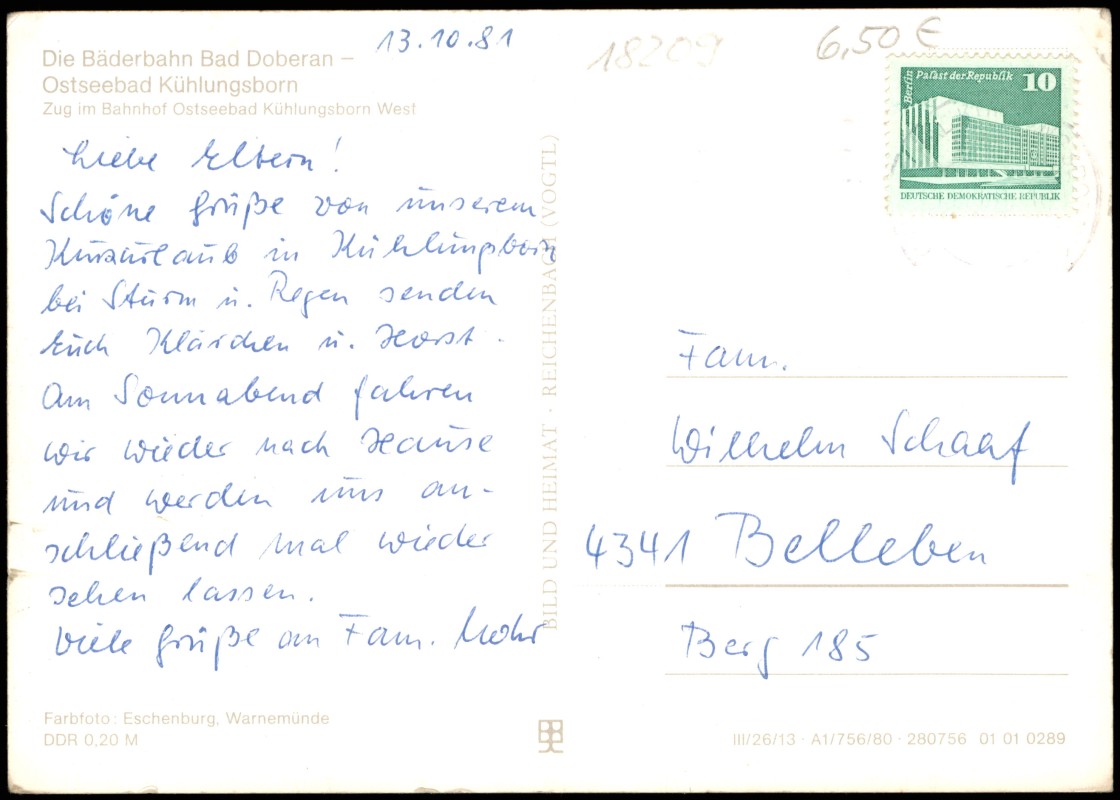 13.10.81
18209
6,50 €
Die Bäderbahn Bad Doberan –
Ostseebad Kühlungsborn
Zug im Bahnhof Ostseebad Kühlungsborn West
Liebe Eltern!
Schöne Grüße von unserem
Kurzurlaub in Kühlungsborn
bei Sturm u. Regen senden
Euch Klärchen u. Horst.
Am Sonnabend fahren
wir wieder nach Hause
und werden uns an-
schließend mal wieder
sehen lassen.
Viele Grüße an Fam. Mohr
Farbfoto: Eschenburg, Warnemünde
DDR 0,20 M
BILD UND HEIMAT · REICHENBACH (VOGTL)
Berlin
Palast der Republik
10
DEUTSCHE DEMOKRATISCHE REPUBLIK
Fam.
Wilhelm Schaaf
4341 Belleben
Berg 185
III/26/13 · A1/756/80 · 280756 01 01 0289